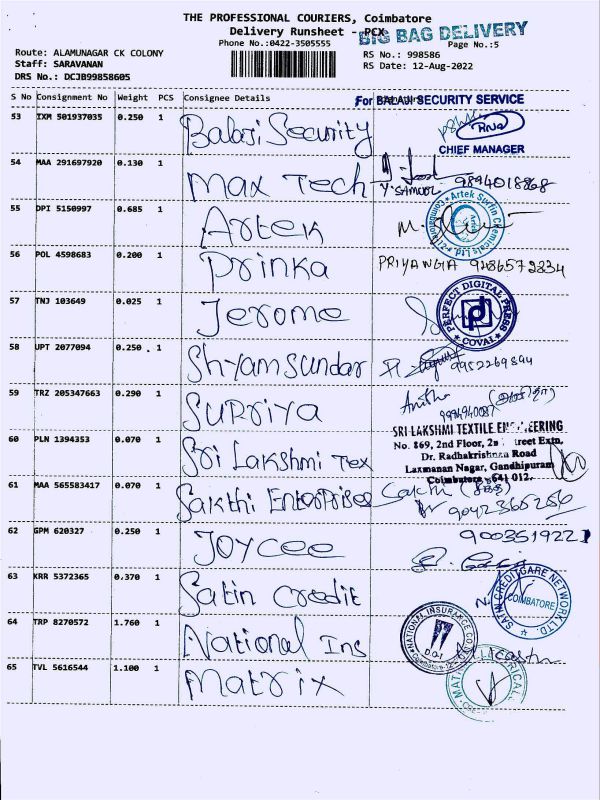 THE PROFESSIONAL COURIERS, Coimbatore
Delivery Runsheet - PCX
BIG BAG DELIVERY
Phone No.:0422-3505555
Page No.:5
Route: ALAMUNAGAR CK COLONY
RS No.: 998586
Staff: SARAVANAN
RS Date: 12-Aug-2022
DRS No.: DCJB99858605
S No Consignment No Weight PCS Consignee Details
For BALAJI SECURITY SERVICE
53 IXM 501937035 0.250 1 Balaji Security
CHIEF MANAGER
54 MAA 291697920 0.130 1 Max Tech
9894018868
55 DPI 5150997 0.685 1 Artek
Artek Surfin Chemicals
56 POL 4598683 0.200 1 Prinka PRIYANGIA 9486572834
57 TNJ 103649 0.025 1 Jerome
PERFECT DIGITAL PRESS
COVAI
58 UPT 2077094 0.250 1 Shyam Sundar 9952269844
59 TRZ 205347663 0.290 1 Supriya Anitha
60 PLN 1394353 0.070 1 Sri Lakshmi Tex
SRI LAKSHMI TEXTILE ENGINEERING
No. 869, 2nd Floor, Street Extn,
Dr. Radhakrishnan Road
Laxmanan Nagar, Gandhipuram
Coimbatore - 641 012.
61 MAA 565583417 0.070 1 Sakthi Enterprises Sakthi
9042365256
62 GPM 620327 0.250 1 Joycee 9003519221
63 KRR 5372365 0.370 1 Satin Credit
SATIN CREDITCARE NETWORK LTD.
COIMBATORE
64 TRP 8270572 1.760 1 National Ins
NATIONAL INSURANCE CO
65 TVL 5616544 1.100 1 Matrix